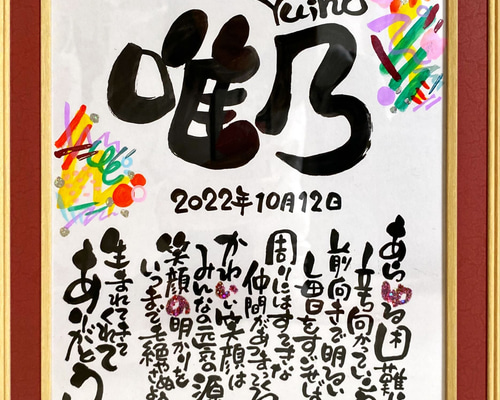 Yuino
唯乃
2022年10月12日
あらゆる困難に
立ち向かっていこう
前向きで明るい
毎日をすごせば
周りにはすてきな
仲間があつまってくる
かわいい笑顔は
みんなの元気の源
笑顔の明かりを
いつまでも絶やさぬよう
生まれてきてくれて
ありがとう